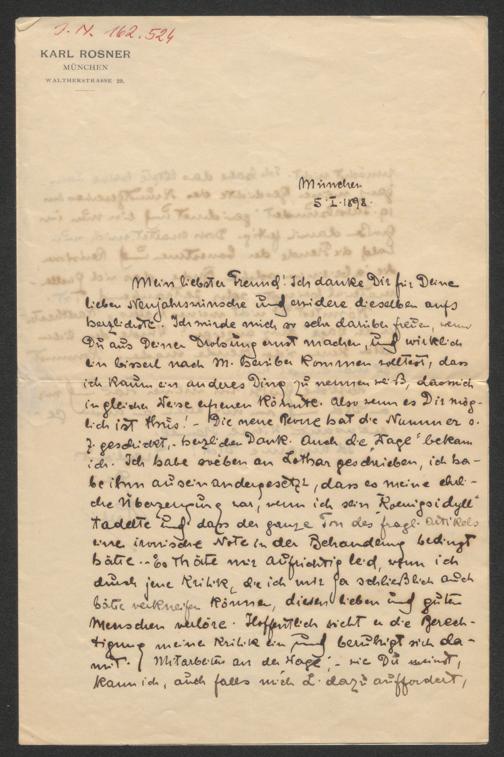 J. N. 162.524
KARL ROSNER
MÜNCHEN
WALTHERSTRASSE 22.
München
5. I. 1898.
Mein liebster Freund! Ich danke Dir für Deine
lieben Neujahrswünsche und erwidere dieselben aufs
herzlichste. Ich würde mich so sehr darüber freuen, wenn
Du aus Deiner Drohung ernst machen, und wirklich
ein bisserl nach M. herüber kommen wolltest, dass
ich kaum ein anderes Ding zu nennen weiß, das mich
in gleicher Weise erfreuen könnte. Also wenn es Dir mög-
lich ist thu's! - Die neue Revue hat die Nummer s.
Z. geschickt, - herzlichen Dank. Auch die "Wage" bekam
ich. Ich habe soeben an Lothar geschrieben, ich ha-
be ihm auseinandergesetzt, dass es meine ehrli-
che Überzeugung war, wenn ich sein "Koenigsidyll"
tadelte und dass der ganze Ton des fragl. Artikels
eine ironische Note in der Behandlung bedingt
hätte. - Es thäte mir aufrichtig leid, wenn ich
durch jene Kritik, die ich mir ja schließlich auch
hätte verkneifen können, diesen lieben und guten
Menschen verlöre. Hoffentlich sieht er die Berech-
tigung meiner Kritik ein und beruhigt sich da-
mit. Mitarbeiter an der Wage, - wie Du meinst,
kann ich, auch falls mich L. dazu auffordert,